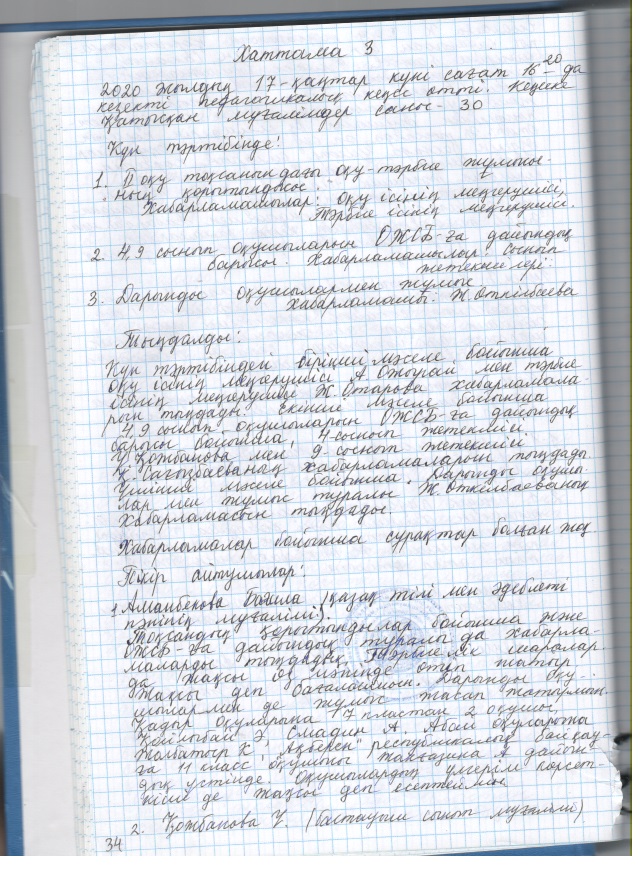 Хаттама 3
2020 жылдың 17-қаңтар күні сағат 16 20 да
кезекті педагогикалық кеңес өтті. Кеңеске
қатысқан мұғалімдер саны - 30
Күн тәртібінде:
1. II оқу тоқсанындағы оқу-тәрбие жұмысы-
ның қорытындысы.
Хабарламашылар: оқу ісінің меңгерушісі,
Тәрбие ісінің меңгерушісі.
2. 4,9 сынып оқушыларын ОЖСБ-ға дайындық
барысы. Хабарламашылар: сынып
жетекшілері.
3. Дарынды оқушылармен жұмыс
Хабарламашы: Ж.Өткілбаева
Тыңдалды:
Күн тәртібіндегі бірінші мәселе бойынша
оқу ісінің меңгерушісі А мен тәрбие
ісінің меңгерушісі Ж.Отарова хабарламала
рын тыңдады. Екінші мәселе бойынша
4,9 сынып оқушыларын ОЖСБ-ға дайындық
барысы бойынша, 4-сынып жетекшісі
Ұ Қожбанова мен 9-сынып жетекшісі
Қ.Сағызбаеваның хабарламаларын тыңдады.
Үшінші мәселе бойынша. Дарынды оқушы
лар мен жұмыс туралы Ж.Өткілбаеваның
хабарламасын тыңдады.
Хабарламалар бойынша сұрақтар болған жоқ.
Пікір айтушылар:
1. Аманбекова Бағила /қазақ тілі мен әдебиеті
пәнінің мұғалімі).
Тоқсандық қорытындылар бойынша және
ОЖСБ-ға дайындық туралы да хабарла-
маларды тыңдадық. Тәрбиелік шаралар
да жақсы өз мәнінде өтіп жатыр
Жақсы деп бағалаймын. Дарынды оқу-
шылармен де жұмыс жасап жатырмын.
Қадыр оқуларына 7 кластан 2 оқушы,
Смадин А. Абай оқуларына
Жолбатыр К, "Ақберен" республикалық байқау-
ға 11 класс оқушысы А дайын-
дық үстінде. Оқушылардың үлгерім көрсет-
кіші де жақсы деп есептеймін
2. Қожбанова Ұ. (бастауыш сынып мұғалімі)
34